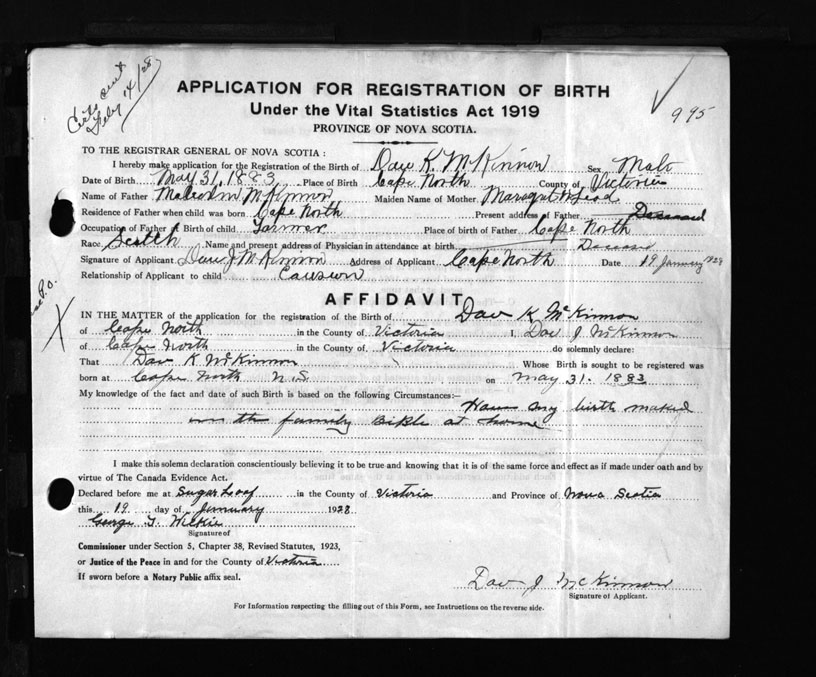 Feby 14/28
995
APPLICATION FOR REGISTRATION OF BIRTH
Under the Vital Statistics Act 1919
PROVINCE OF NOVA SCOTIA.
TO THE REGISTRAR GENERAL OF NOVA SCOTIA :
I hereby make application for the Registration of the Birth of Dav K. McKinnon Sex Male
Date of Birth May 31, 1883 Place of Birth Cape North County of Victoria
Name of Father Malcolm McKinnon Maiden Name of Mother Margret McLeod
Residence of Father when child was born Cape North Present address of Father
Occupation of Father at Birth of child Farmer Place of birth of Father Cape North
Race Scotch Name and present address of Physician in attendance at birth
Signature of Applicant Dav J McKinnon Address of Applicant Cape North Date 19 January
Relationship of Applicant to child
AFFIDAVIT
IN THE MATTER of the application for the registration of the Birth of Dav K McKinnon
of Cape North in the County of Victoria I, Dav J McKinnon
of Cape North in the County of Victoria do solemnly declare:
That Dav K McKinnon Whose Birth is sought to be registered was
born at Cape North N.S. on May 31. 1883
My knowledge of the fact and date of such Birth is based on the following Circumstances:—
my birth
the family Bible at home
I make this solemn declaration conscientiously believing it to be true and knowing that it is of the same force and effect as if made under oath and by
virtue of The Canada Evidence Act.
Declared before me at Sugar Loaf in the County of Victoria and Province of Nova Scotia
this 19 day of January 1928
George T. Wilkie
Signature of
Commissioner under Section 5, Chapter 38, Revised Statutes, 1923,
or Justice of the Peace in and for the County of Victoria
If sworn before a Notary Public affix seal.
Dav J McKinnon
Signature of Applicant.
For Information respecting the filling out of this Form, see Instructions on the reverse side.